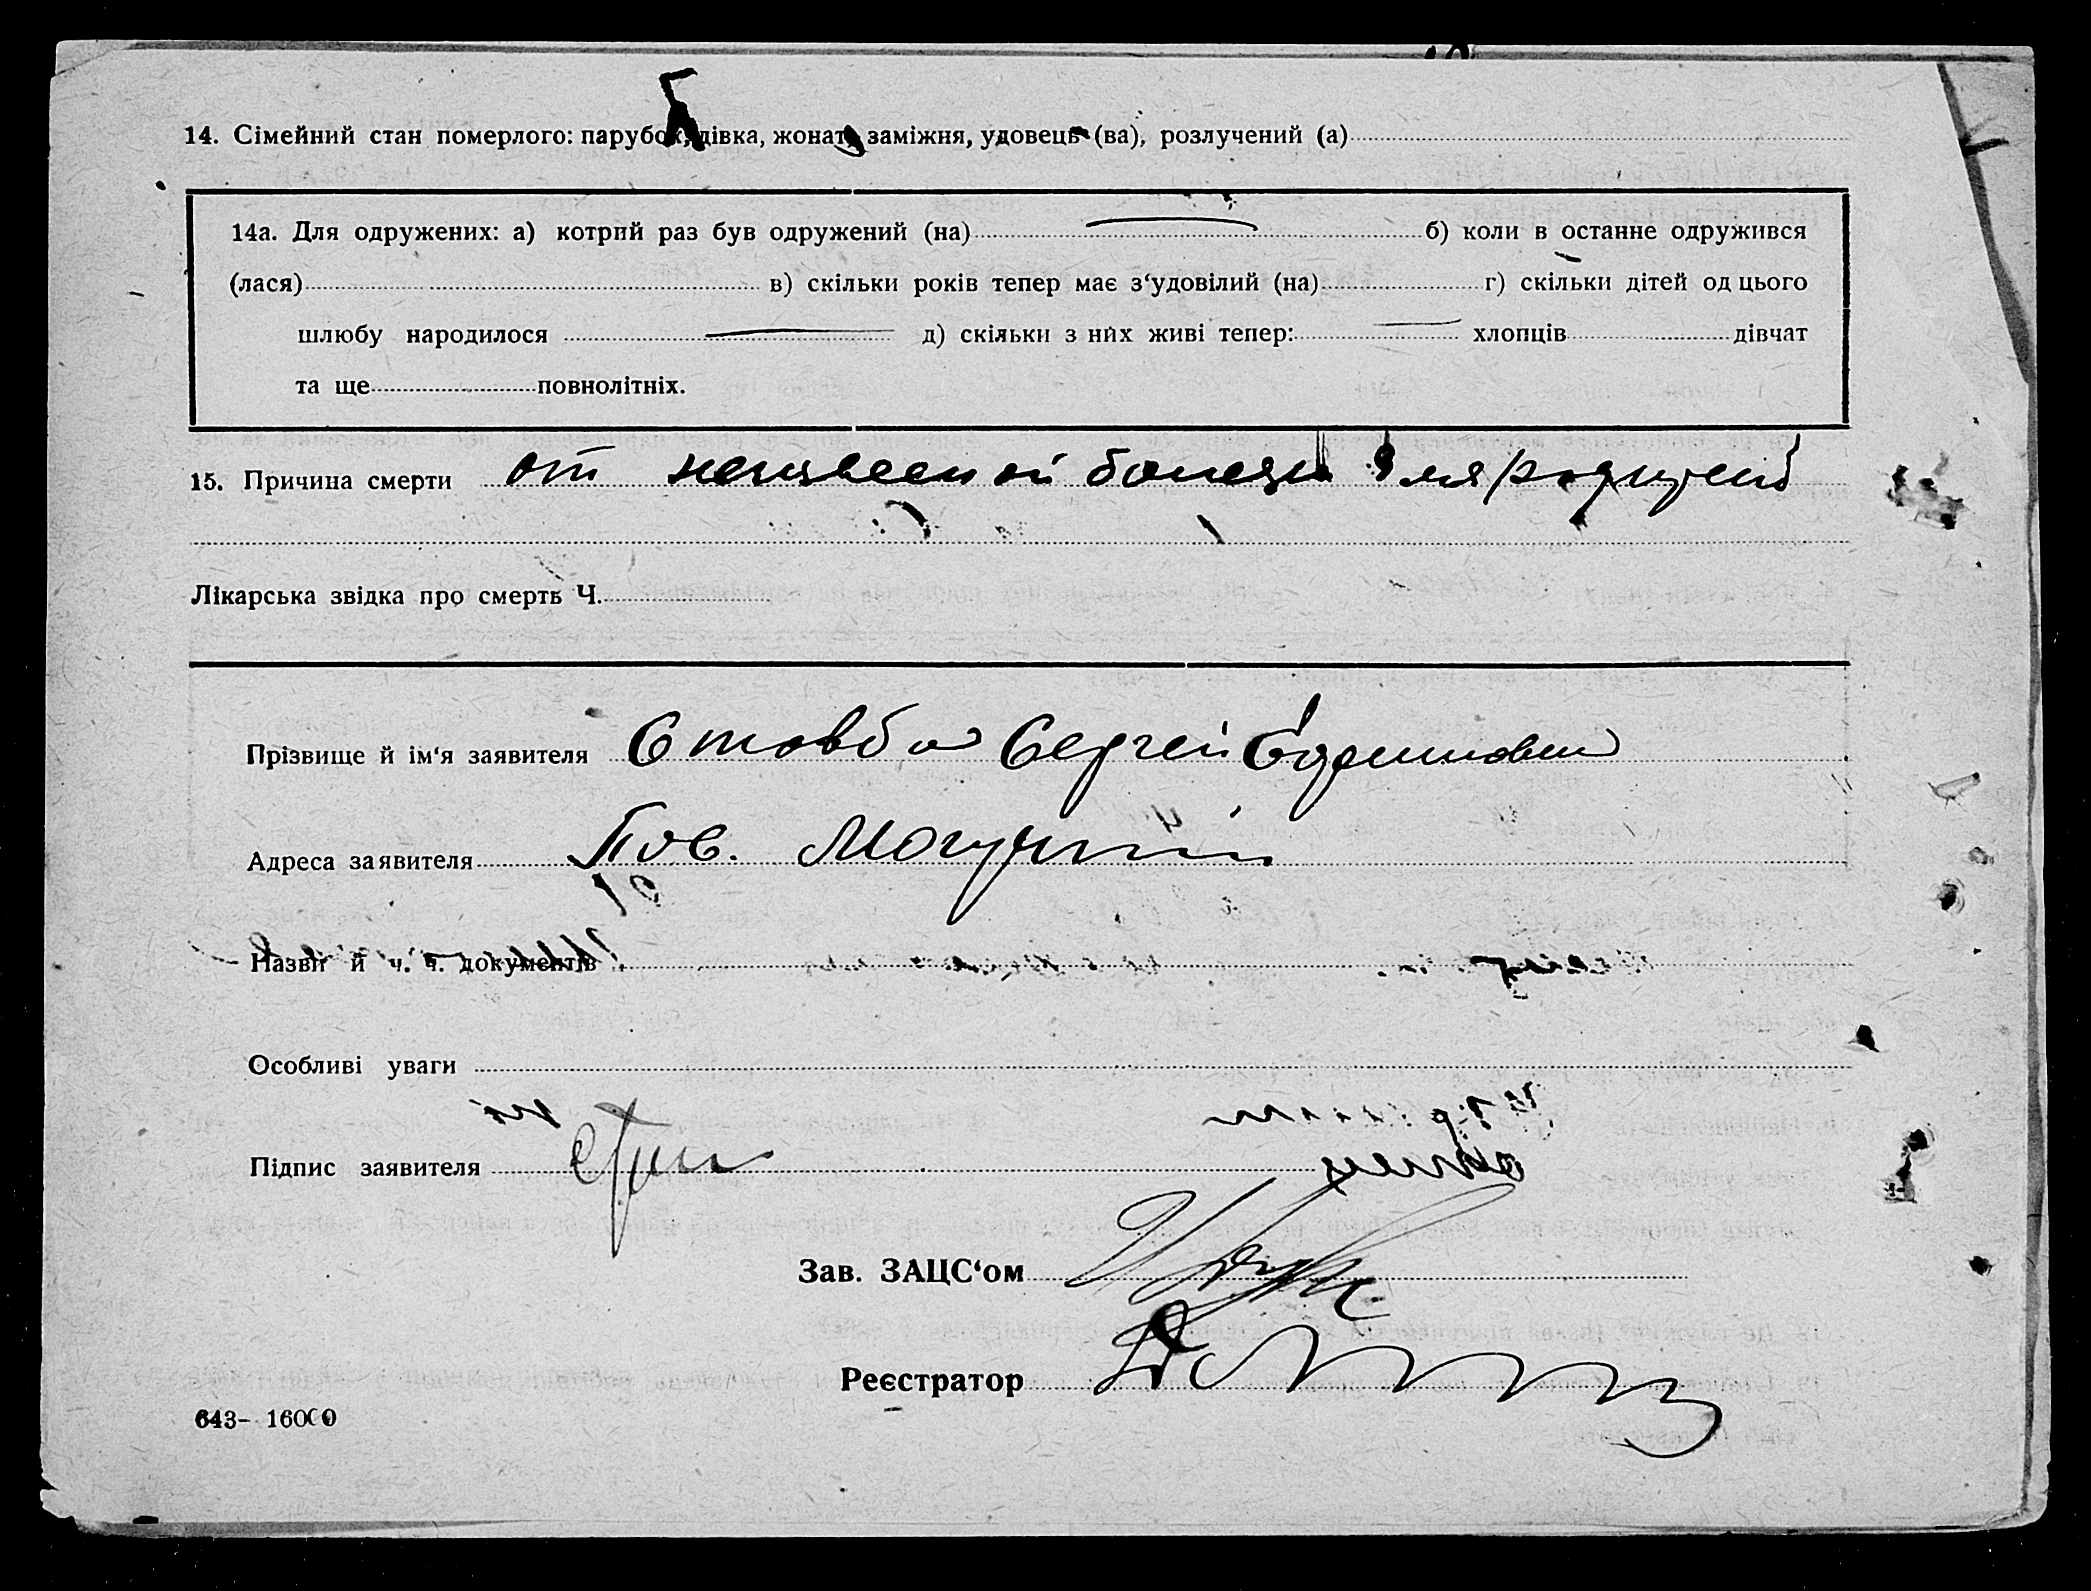 14. Сімейний стан померлого: парубок, дівка, жонат, заміжня, удовець (ва), розлучений (а)
14а. Для одружених: а) котрий раз був одружений (на) б) коли в останне одружився
(лася) в) скільки років тепер має з‘удовілий (на) г) скільки дітей од цього
шлюбу народилося д) скільки з них живі тепер: хлопців дівчат
та ще повнолітніх.
15. Причина смерти от неизвесной болезни для родителей
Лікарська звідка про смерть Ч.
Прізвище й ім‘я заявителя Стовба Сергей
Адреса заявителя Пос. Могучий
Назви й ч. ч. документів
Особливі уваги
Підпис заявителя
Зав. ЗАЦС‘ом
Реєстратор
643- 16000